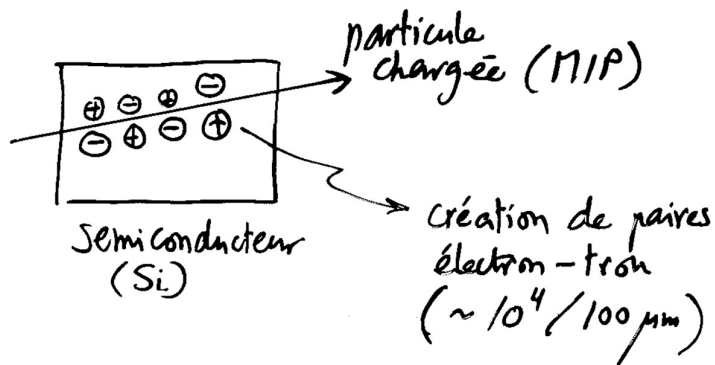 particule
chargée (MIP)
+ - + -
- + - +
semiconducteur
(Si)
création de paires
électron-trou
(~ 10⁴/100 μm)